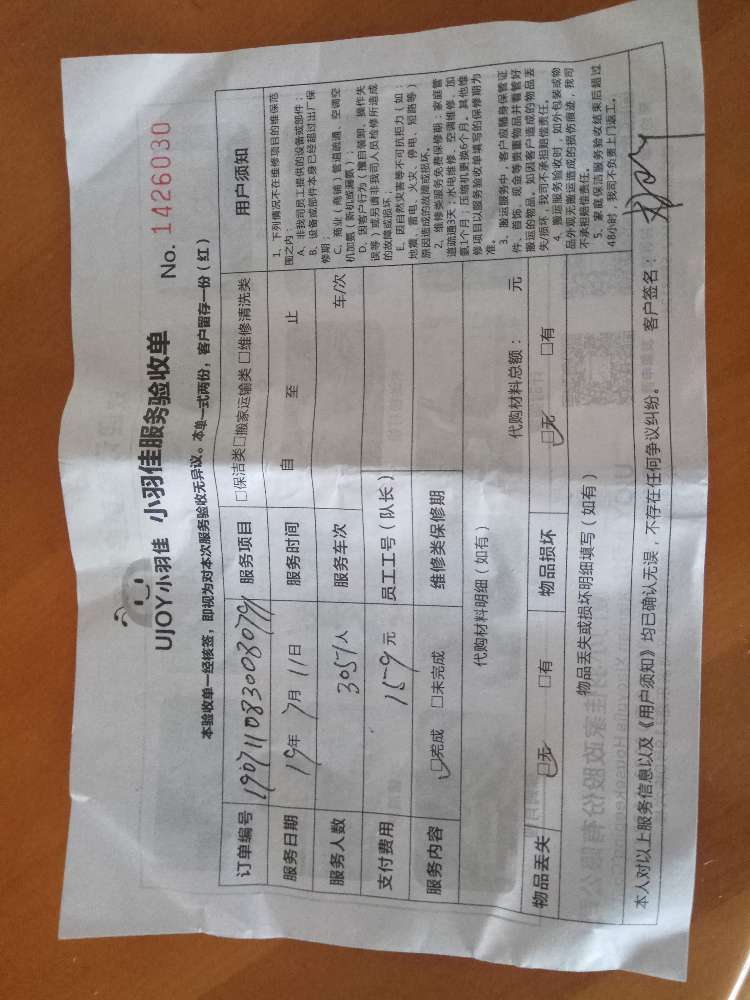 UJOY小羽佳 小羽佳服务验收单 No. 1426030
本验收单一经核签，即视为对本次服务验收无异议。本单一式两份，客户留存一份（红）
订单编号 1907110830080791 服务项目 □保洁类□搬家运输类 □维修清洗类
服务日期 19年 7月 11日 服务时间 自 至 止
服务人数 3057人 服务车次 车/次
支付费用 159元 员工工号（队长）
服务内容 ☑完成 □未完成 维修类保修期
代购材料明细（如有） 代购材料总额： 元
物品丢失 ☑无 □有 物品损坏 ☑无 □有
物品丢失或损坏明细填写（如有）
用户须知
1、下列情况不在维修项目的维保范
围之内：
A、非我司员工提供的设备或部件；
B、设备或部件本身已经超过出厂保
修期；
C、商业（商铺）管道疏通、空调空
机加氨（新机或漏氨）；
D、因客户行为（擅自装卸、操作失
误等）或另请非我司人员检修所造成
的故障或损坏；
E、因自然灾害等不可抗拒力（如：
地震、雷电、火灾、停电、短路等）
原因造成的故障或损坏。
2、维修类服务免费保修期：家庭管
道疏通3天；水电维修、空调维修、加
氨1个月；压缩机更换6个月。其他维
修项目以服务验收单填写的保修期为
准。
3、搬运服务中，客户应随身保管证
件、首饰、现金等贵重物品并看管好
搬运的物品，如因客户造成的物品丢
失/损坏，我司不承担赔偿责任。
4、搬运服务验收时，如外包装或物
品外观无搬运造成的损伤痕迹，我司
不承担赔偿责任。
5、家庭保洁服务验收结束后超过
48小时，我司不负责上门返工。
本人对以上服务信息以及《用户须知》均已确认无误，不存在任何争议纠纷。 客户签名：